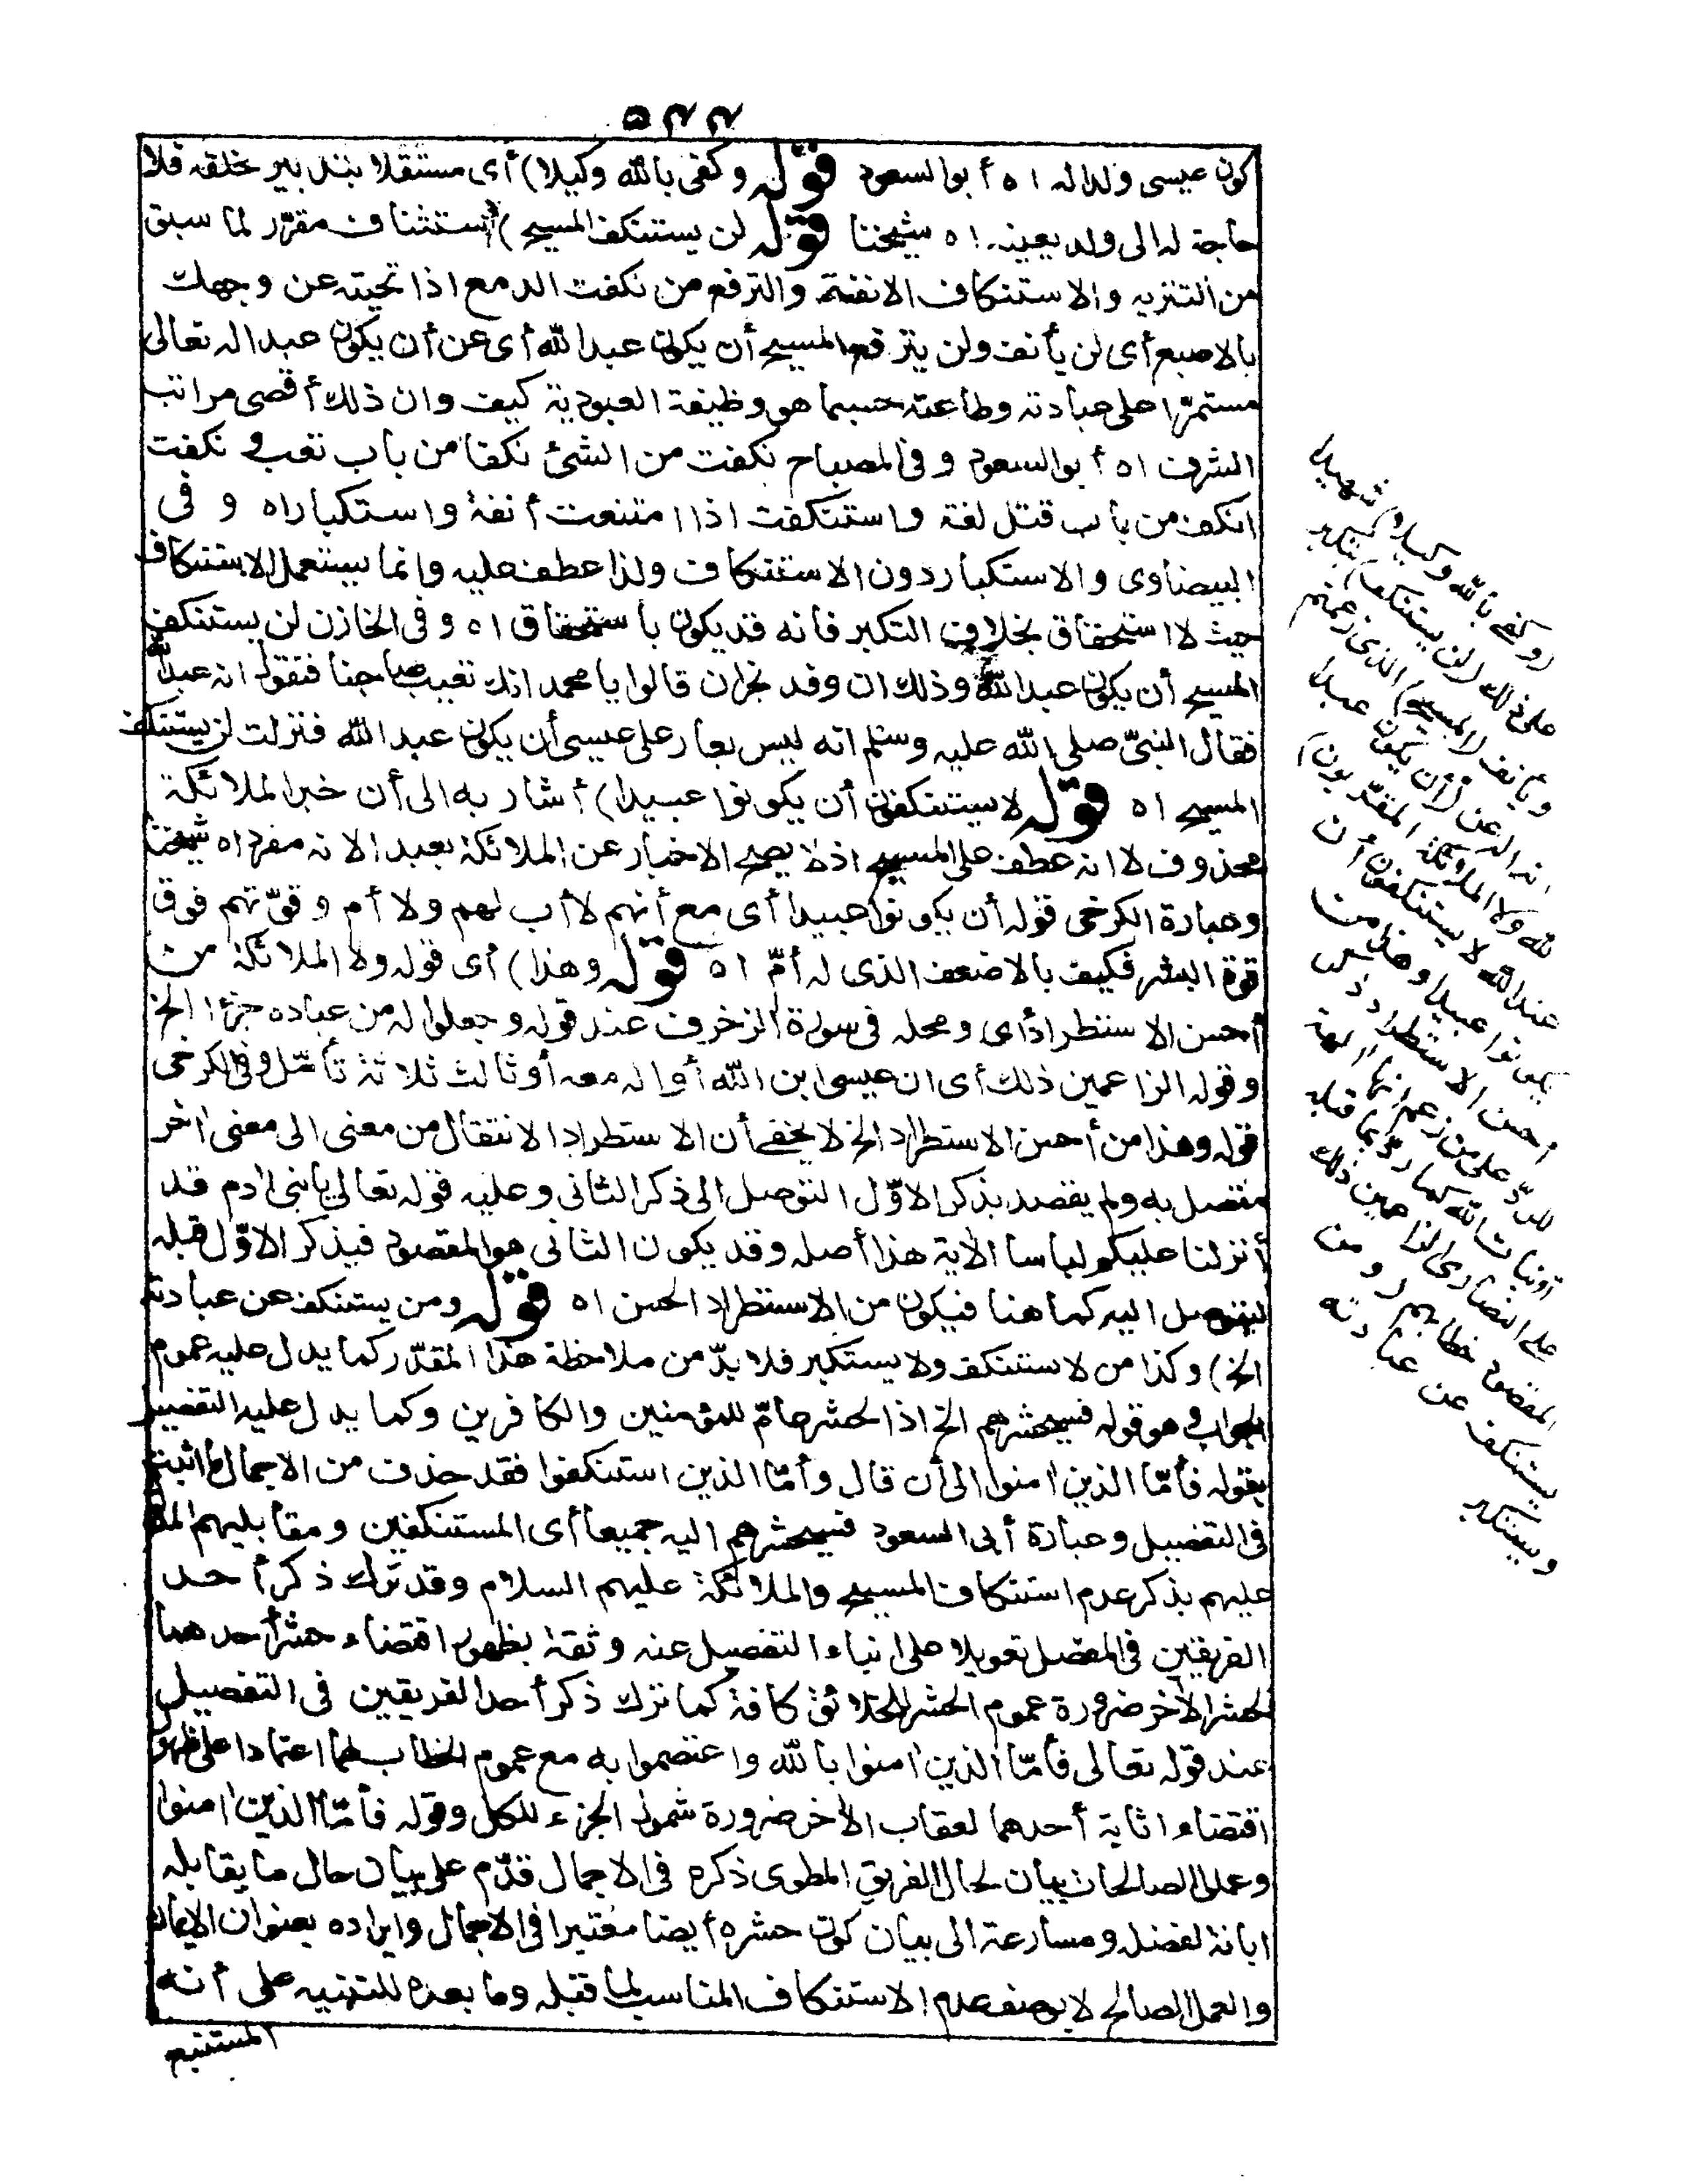 كون عيسى ولدا له اه أبو السعود قوله وكفى بالله وكيلا) أى مستقلا بتدبير خلقه فلا
حاجة له الى ولد يعينه اه شيخنا قوله لن يستنكف المسيح) استئناف مقرّر لما سبق
من التنزيه والاستنكاف الانفة والترفع من نكفت الدمع اذا نحيته عن وجهك
بالاصبع أى لن يأنف ولن يترفع المسيح أن يكون عبدا لله أى عن أن يكون عبدا له تعالى
مستمرّا على عبادته وطاعته حسبما هو وظيفة العبودية كيف وان ذلك أقصى مراتب
الشرف اه أبو السعود وفى المصباح نكفت من الشئ نكفا من باب تعب ونكفت
انكف من باب قتل لغة واستنكفت اذا امتنعت أنفة واستكبارا اه وفى
البيضاوى والاستكبار دون الاستنكاف ولذا عطف عليه وانما يستعمل الاستنكاف
حيث لا استحقاق بخلاف التكبر فانه قد يكون باستحقاق اه وفى الخازن لن يستنكف
المسيح أن يكون عبدا لله وذلك ان وفد نجران قالوا يا محمد انك تعيب صاحبنا فتقول انه عبد الله
فقال النبىّ صلى الله عليه وسلم انه ليس بعار على عيسى أن يكون عبد الله فنزلت لن يستنكف
المسيح اه قوله لا يستنكفون أن يكونوا عبيدا) أشار به الى أن خبر الملائكة
محذوف لا انه عطف على المسيح اذ لا يصح الاخبار عن الملائكة بعبدا لانه مفرد اه شيخنا
وعبارة الكرخى قوله أن يكونوا عبيدا أى مع أنهم لا أب لهم ولا أم وقوّتهم فوق
قوة البشر فكيف بالاضعف الذى له أمّ اه قوله وهذا) أى قوله ولا الملائكة من
أحسن الاستطراد أى ومحله فى سورة الزخرف عند قوله وجعلوا له من عباده جزءا الخ
وقوله الزاعمين ذلك أى ان عيسى ابن الله أو اله معه أو ثالث ثلاثة تأمّل وفى الكرخى
قوله وهذا من أحسن الاستطراد الخ لا يخفى أن الاستطراد الانتقال من معنى الى معنى اخر
متصل به ولم يقصد بذكر الاوّل التوصل الى ذكر الثانى وعليه قوله تعالى يا بنى ادم قد
أنزلنا عليكم لباسا الاية هذا أصله وقد يكون الثانى هو المقصود فيذكر الاوّل قبله
ليتوصل اليه كما هنا فيكون من الاستطراد الحسن اه قوله ومن يستنكف عن عبادته
الخ) وكذا من لا يستنكف ولا يستكبر فلا بدّ من ملاحظة هذا المقدّر كما يدل عليه عموم
الجواب وهو قوله فسيحشرهم الخ اذ الحشر عامّ للمؤمنين والكافرين وكما يدل عليه التفصيل
بقوله فأمّا الذين امنوا الى أن قال وأمّا الذين استنكفوا فقد حذف من الاجمال ما أثبته
فى التفصيل وعبارة أبى السعود فسيحشرهم اليه جميعا أى المستنكفين ومقابليهم
عليهم بذكر عدم استنكاف المسيح والملائكة عليهم السلام وقد ترك ذكر أحد
الفريقين فى المفصل تعويلا على انباء التفصيل عنه وثقة بظهور اقتضاء حشر أحدهما
لحشر الاخر ضرورة عموم الحشر للخلائق كافة كما ترك ذكر أحد الفريقين فى التفصيل
عند قوله تعالى فأمّا الذين امنوا بالله واعتصموا به مع عموم الخطاب لهما اعتمادا على ظهور
اقتضاء اثابة أحدهما لعقاب الاخر ضرورة شمول الجزاء للكل وقوله فأمّا الذين امنوا
وعملوا الصالحات بيان لحال الفريق المطوى ذكره فى الاجمال قدّم على بيان حال ما يقابله
ابانة لفضله ومسارعة الى بيان كون حشره أيضا معتبرا فى الاجمال وايراده بعنوان الايمان
والعمل الصالح لا بوصف عدم الاستنكاف المناسب لما قبله وما بعده للتنبيه على أنه
المستتبع
(وكفى بالله وكيلا) شهيدا
على ذلك (لن يستنكف) يتكبر
ويأنف (المسيح) الذى زعمتم
انه اله عن (أن يكون عبدا
لله ولا الملائكة المقرّبون)
عند الله لا يستنكفون أن
يكونوا عبيدا وهذا من
أحسن الاستطراد ذكر
للردّ على من زعم انها آلهة
أو بنات الله كما ردّ بما قبله
على النصارى الزاعمين ذلك
المقصود خطابهم (ومن
يستنكف عن عبادته
ويستكبر